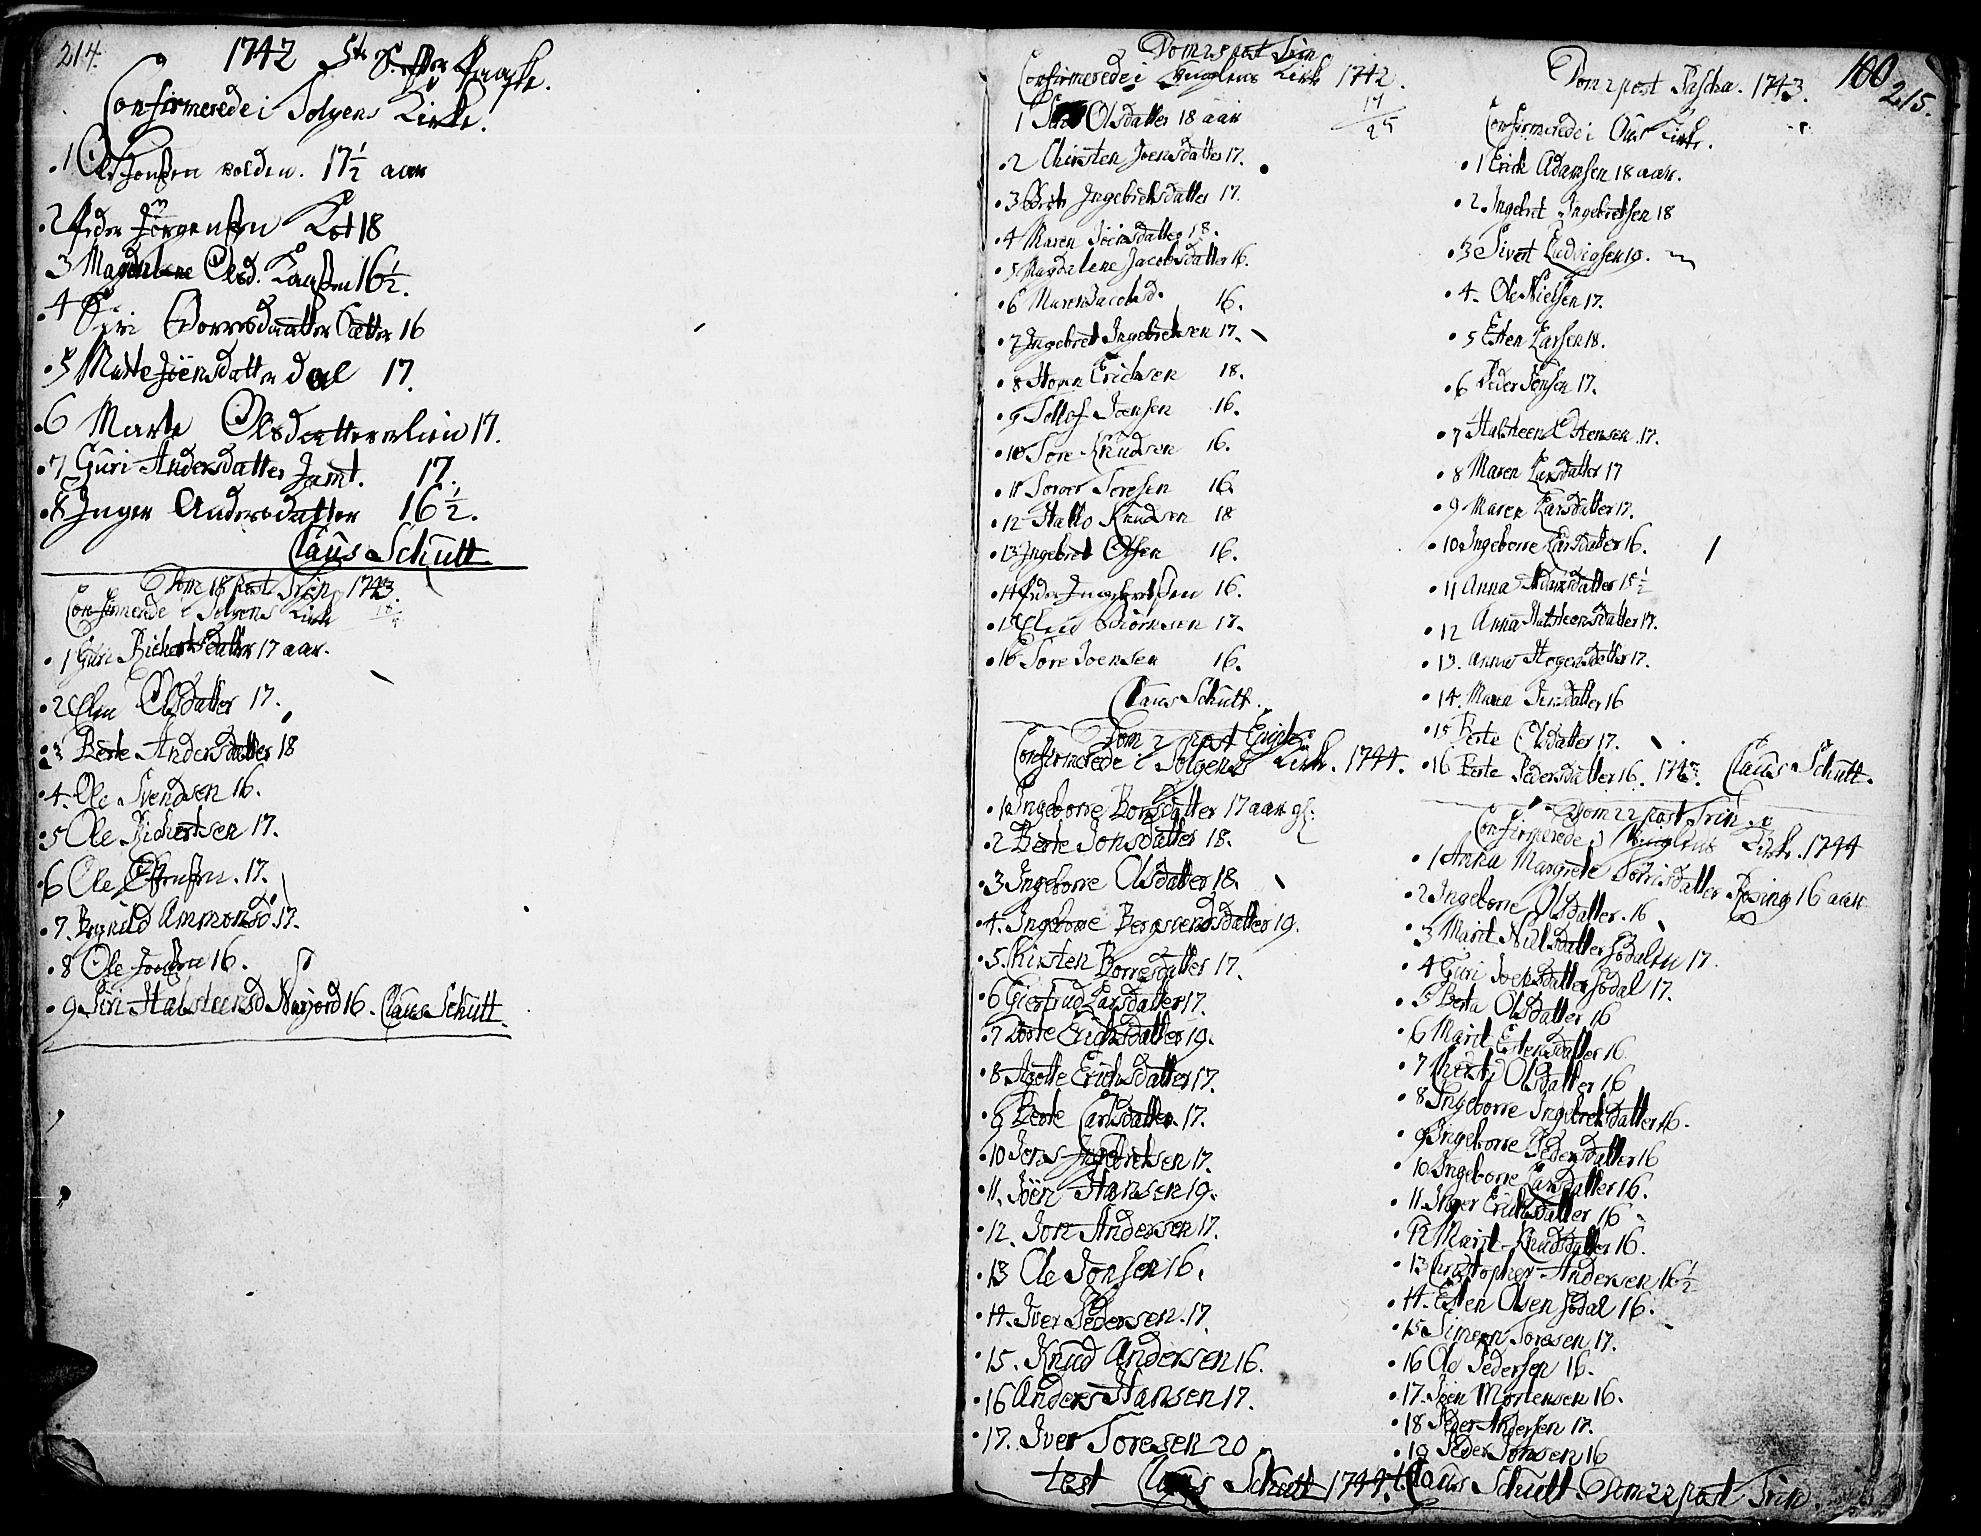 214.
1742 5te S. effter Paaske.
Confirmerede i Tolgens Kirke.
1 Ole Jonsen volden. 17½ aar
2 Peder Jörgensen Kot 18
3 Magdalene Olsd. Kaasen 16½.
4 Siri Borresdaatter Sætter 16
5 Marte Joensdatter dal 17.
6 Marte Olsdatter vlien 17.
7 Guri Andersdatter Jamt. 17.
8 Inger Andersdatter 16½.
Claus Schutt
Dom 18 post Trin. 1743.
Confirmerede i Tolgens Kirke
1 Guri Richertsdatter 17 aar.
2 Elen Olsdatter 17.
3 Berte Andersdatter 18
4. Ole Svendsen 16.
5 Ole Richertsen 17.
6 Ole Estensen. 17.
7. Ragnild Ammonsd. 17.
8 Ole Jonsen 16.
9 Siri Halsteensd Narjord 16. Claus Schutt.
Dom 25 post Trin
Confirmerede i Kirke 1742.
1 Olsdatter 18 aar
17
25
2 Chirsten Joensdatter 17.
3 Berte Ingebretsdatter 17.
4 Maren Joensdatter 18.
5 Magdalene Jacobsdatter 16.
6 Maren Jacobsd. 16.
7 Ingebret Ingebretsen 17.
8 Erichsen 18.
9 Tollef Joensen 16.
10 Tore Knudsen 16.
11 Toresen 16.
12 Knudsen 18
13 Ingebret Olsen 16.
14 Peder Ingebretsen 16.
15 Biörnsen 17.
16 Tore Joensen 16.
Claus Schutt.
Dom 2 post Epiph:
Confirmerede i Tolgens Kirke. 1744.
1. Ingeborre Borresdatter 17 aar gl.
2 Berte Jonsdatter 18.
3 Ingeborre Olsdatter 18.
4. Ingeborre Bergsvendsdatter 19.
5. Kirsten Borresdatter 17.
6 Giertrud Larsdatter 17.
7 Dorte Erichsdatter 19.
8 Agotte Erichsdatter 17.
9 Berte Larsdatter. 17.
10 Jens Ingebretsen 17.
11. Joen Hansen 19.
12. Jon Andersen 17.
13 Ole Jonsen 16.
14. Iver Pedersen. 17.
15. Knud Andersen 16.
16 Anders Hansen 17.
17. Iver Toresen 20
test Claus Schutt 1744.
Dom 2 post Pascha. 1743.
100
215.
Confirmerede i Kirke.
1 Erich Adamsen 18 aar.
2. Ingebret Ingebretsen 18
3 Sivert Ludvigsen 19.
4. Ole Nielsen 17.
5 Esten Larsen 18.
6 Peder Jonsen 17.
7 Halsteen Estensen. 17.
8 Maren Larsdatter 17
9 Maren Larsdatter 17.
10 Ingeborre Larsdatter 16.
11 Anna Adamsdatter 15½
12 Anna Halsteensdatter 17.
13. Anne 17.
14. Jensdatter 16
15 Berte Olsdatter 17.
16 Berte Pedersdatter 16. 1743. Claus Schutt.
Dom 22 post Trin.
Confirmerede i Kirke. 1744
1 Anna Margrete Rosing 16 aar
2 Ingeborre Olsdatter. 16
3 Marit Nielsdatter Sødalen 17.
4 Guri Joensdatter Sødal 17.
5 Berta Olsdatter 16
6 Marit Estensdatter 16.
7 Olsdatter 16
8 Ingeborre Ingebretsdatter 16.
9 Ingeborre Pedersdatter 16
10 Ingeborre Larsdatter 16.
11 Inger Erichsdatter 16
12 Marit Knudsdatter 16.
13 Christopher Andersen 16½
14. Esten Olsen Sødal 16.
15 Simen Toresen 17.
16 Ole Pedersen 16.
17. Joen Mortensen 16.
18 Peder Andersen 17.
19 Peder Jonsen 16
Claus Schutt. Dom 22 post Trin.